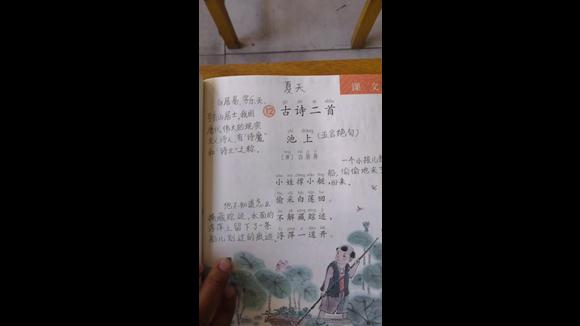 夏天
课文
白居易,字乐天,
号香山居士,我国
唐代伟大的现实
主义诗人,有“诗魔”
和“诗王”之称。
12 古诗二首
池上 (五言绝句)
[唐] 白居易
一个小孩儿
小娃撑小艇,
船,偷偷地来了
偷采白莲回。
回来。
他不知道怎么
掩藏踪迹,水面的
浮萍上留下了一条
船儿划过的痕迹。
不解藏踪迹,
浮萍一道开。